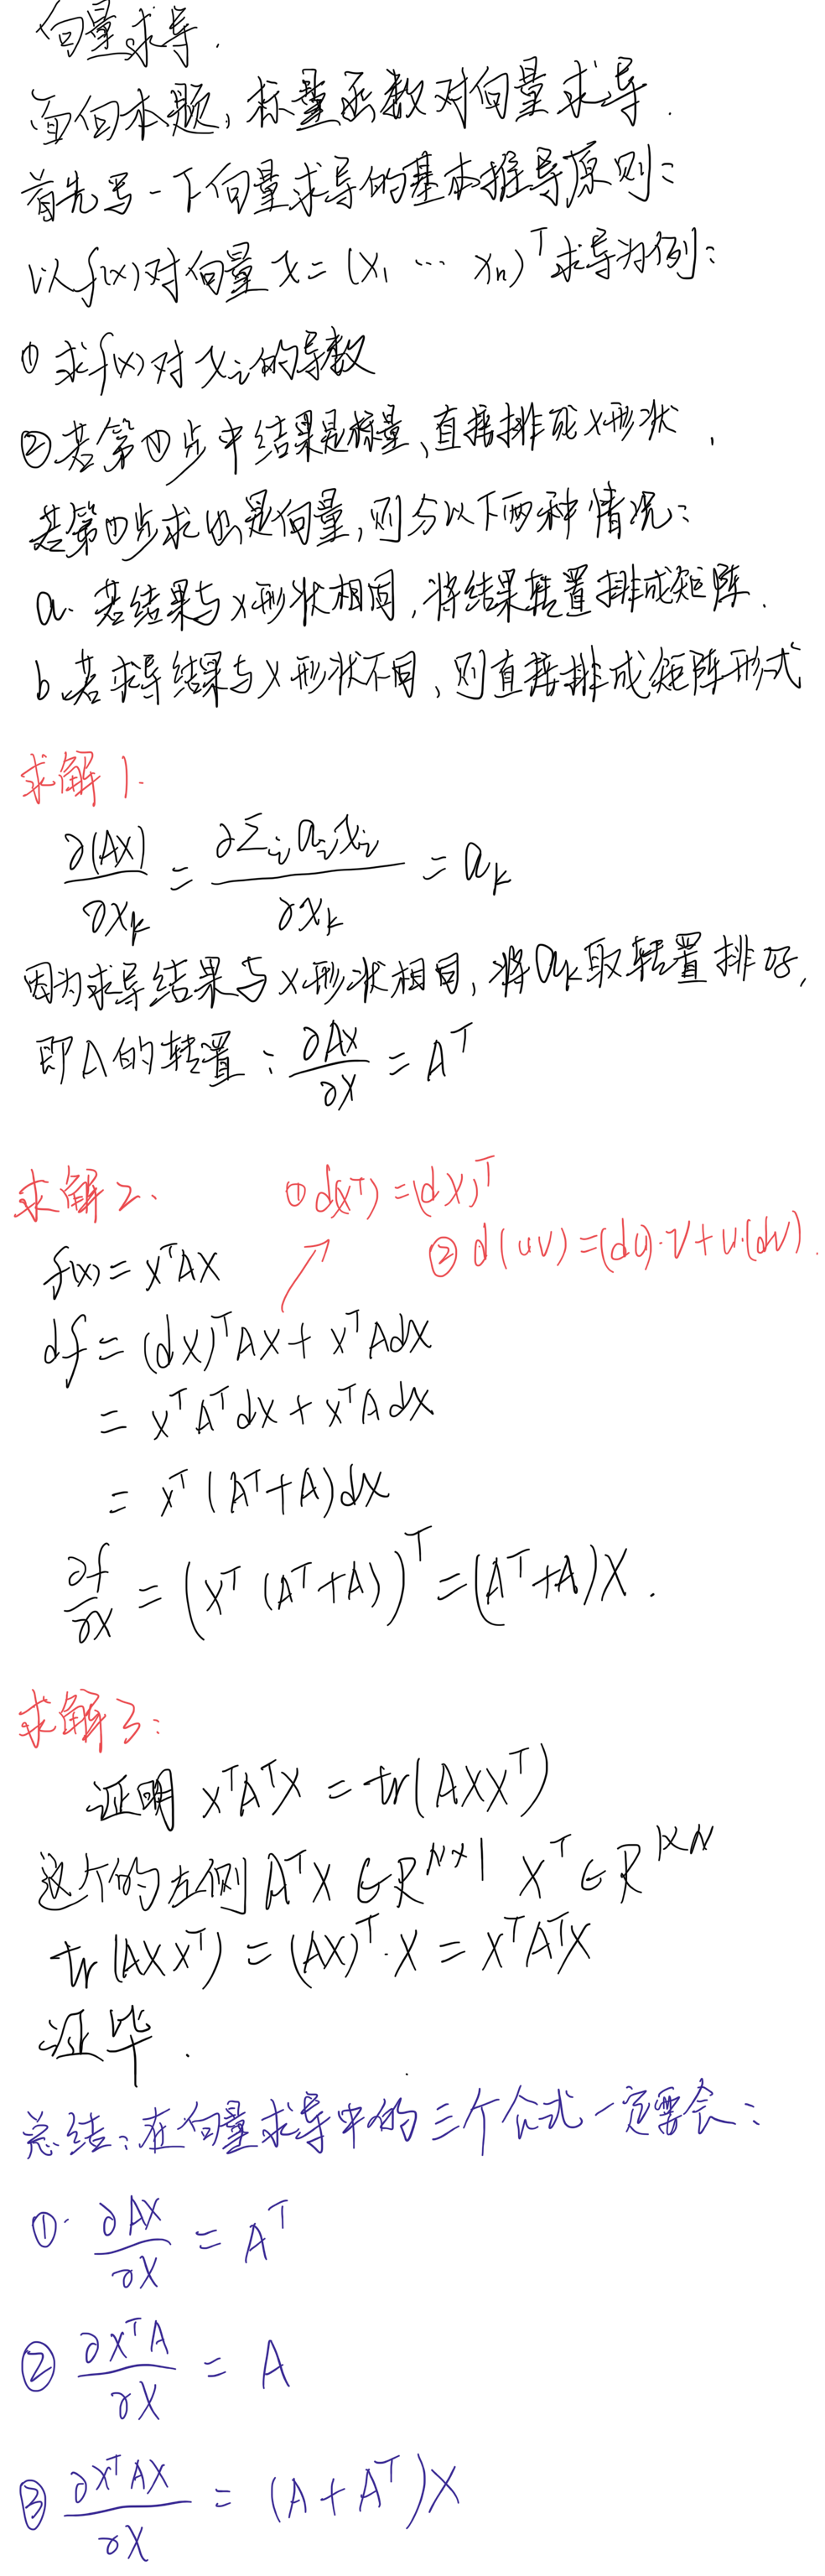 向量求导.
面向本题,标量函数对向量求导.
首先写一下向量求导的基本推导原则:
以f(x)对向量x=(x₁ ⋯ xₙ)ᵀ求导为例:
① 求f(x)对xᵢ的导数
②若第①步中结果是标量,直接排成x形状.
若第①步求出是向量,则分以下两种情况:
a. 若结果与x形状相同,将结果转置排成矩阵.
b.若求导结果与x形状不同,则直接排成矩阵形式
求解1.
∂(AX)/∂xₖ = ∂Σᵢaᵢxᵢ/∂xₖ = aₖ
因为求导结果与x形状相同,将aₖ取转置排好,
即A的转置:∂AX/∂X = Aᵀ
求解2. ①d(xᵀ)=(dx)ᵀ
②d(uv)=(du)·v+u·(dv).
f(x)=xᵀAX
df=(dx)ᵀAX+xᵀAdx
=xᵀAᵀdx+xᵀAdx
=xᵀ(Aᵀ+A)dx
∂f/∂x=(xᵀ(Aᵀ+A))ᵀ=(Aᵀ+A)X.
求解3:
证明 xᵀAᵀX=tr(AXXᵀ)
这个的左侧AᵀX∈Rᴺˣ¹ Xᵀ∈R¹ˣᴺ
tr(AXXᵀ)=(AX)ᵀ·X=XᵀAᵀX
证毕.
总结:在向量求导中的三个公式一定要会:
①. ∂AX/∂X = Aᵀ
② ∂XᵀA/∂X = A
③ ∂XᵀAX/∂X = (A+Aᵀ)X